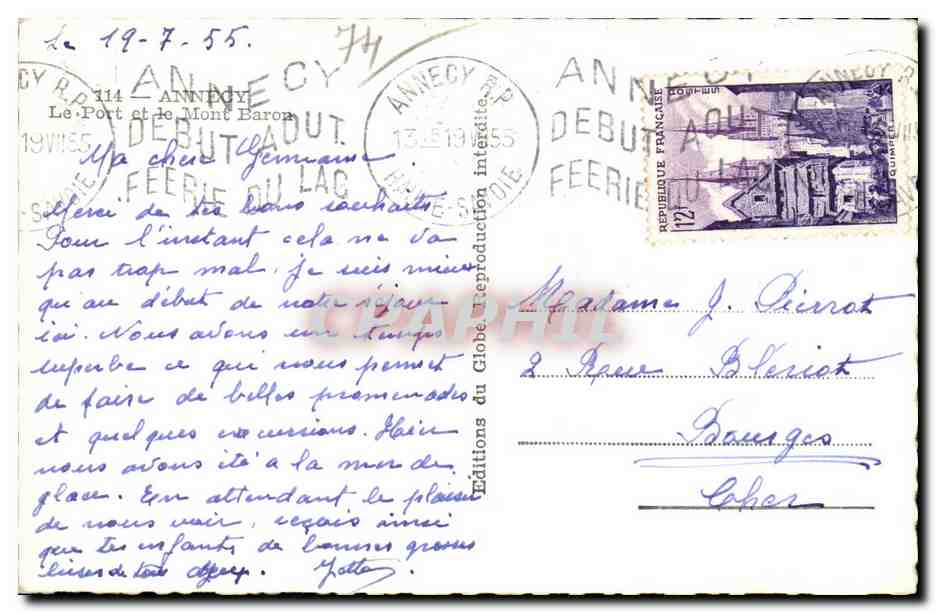 Le 19-7-55.
74
114 — ANNECY
Le Port et le Mont Baron
ANNECY R.P
19 VII 55
ANNECY
DEBUT AOUT
FEERIE DU LAC
ANNECY R.P
13-E 19 VII 55
HAUTE-SAVOIE
ANNECY
DEBUT AOUT
FEERIE DU LAC
REPUBLIQUE FRANÇAISE
POSTES
12F
QUIMPER
Ma cher Germaine.
Merci de tes bons souhaits
Pour l'instant cela ne va
pas trop mal, je suis mieux
qu'au début de notre séjour
ici. Nous avons un temps
superbe ce qui nous permet
de faire de belles promenades
et quelques excursions. Hier
nous avons été à la mer de
glace. En attendant le plaisir
de nous voir, reçois ainsi
que tes enfants de bonnes grosses
bises de tous deux.
Editions du Globe. Reproduction interdite.
CPAPHIL
Madame J. Pierrot
2 Rue Blériot
Bourges
Cher